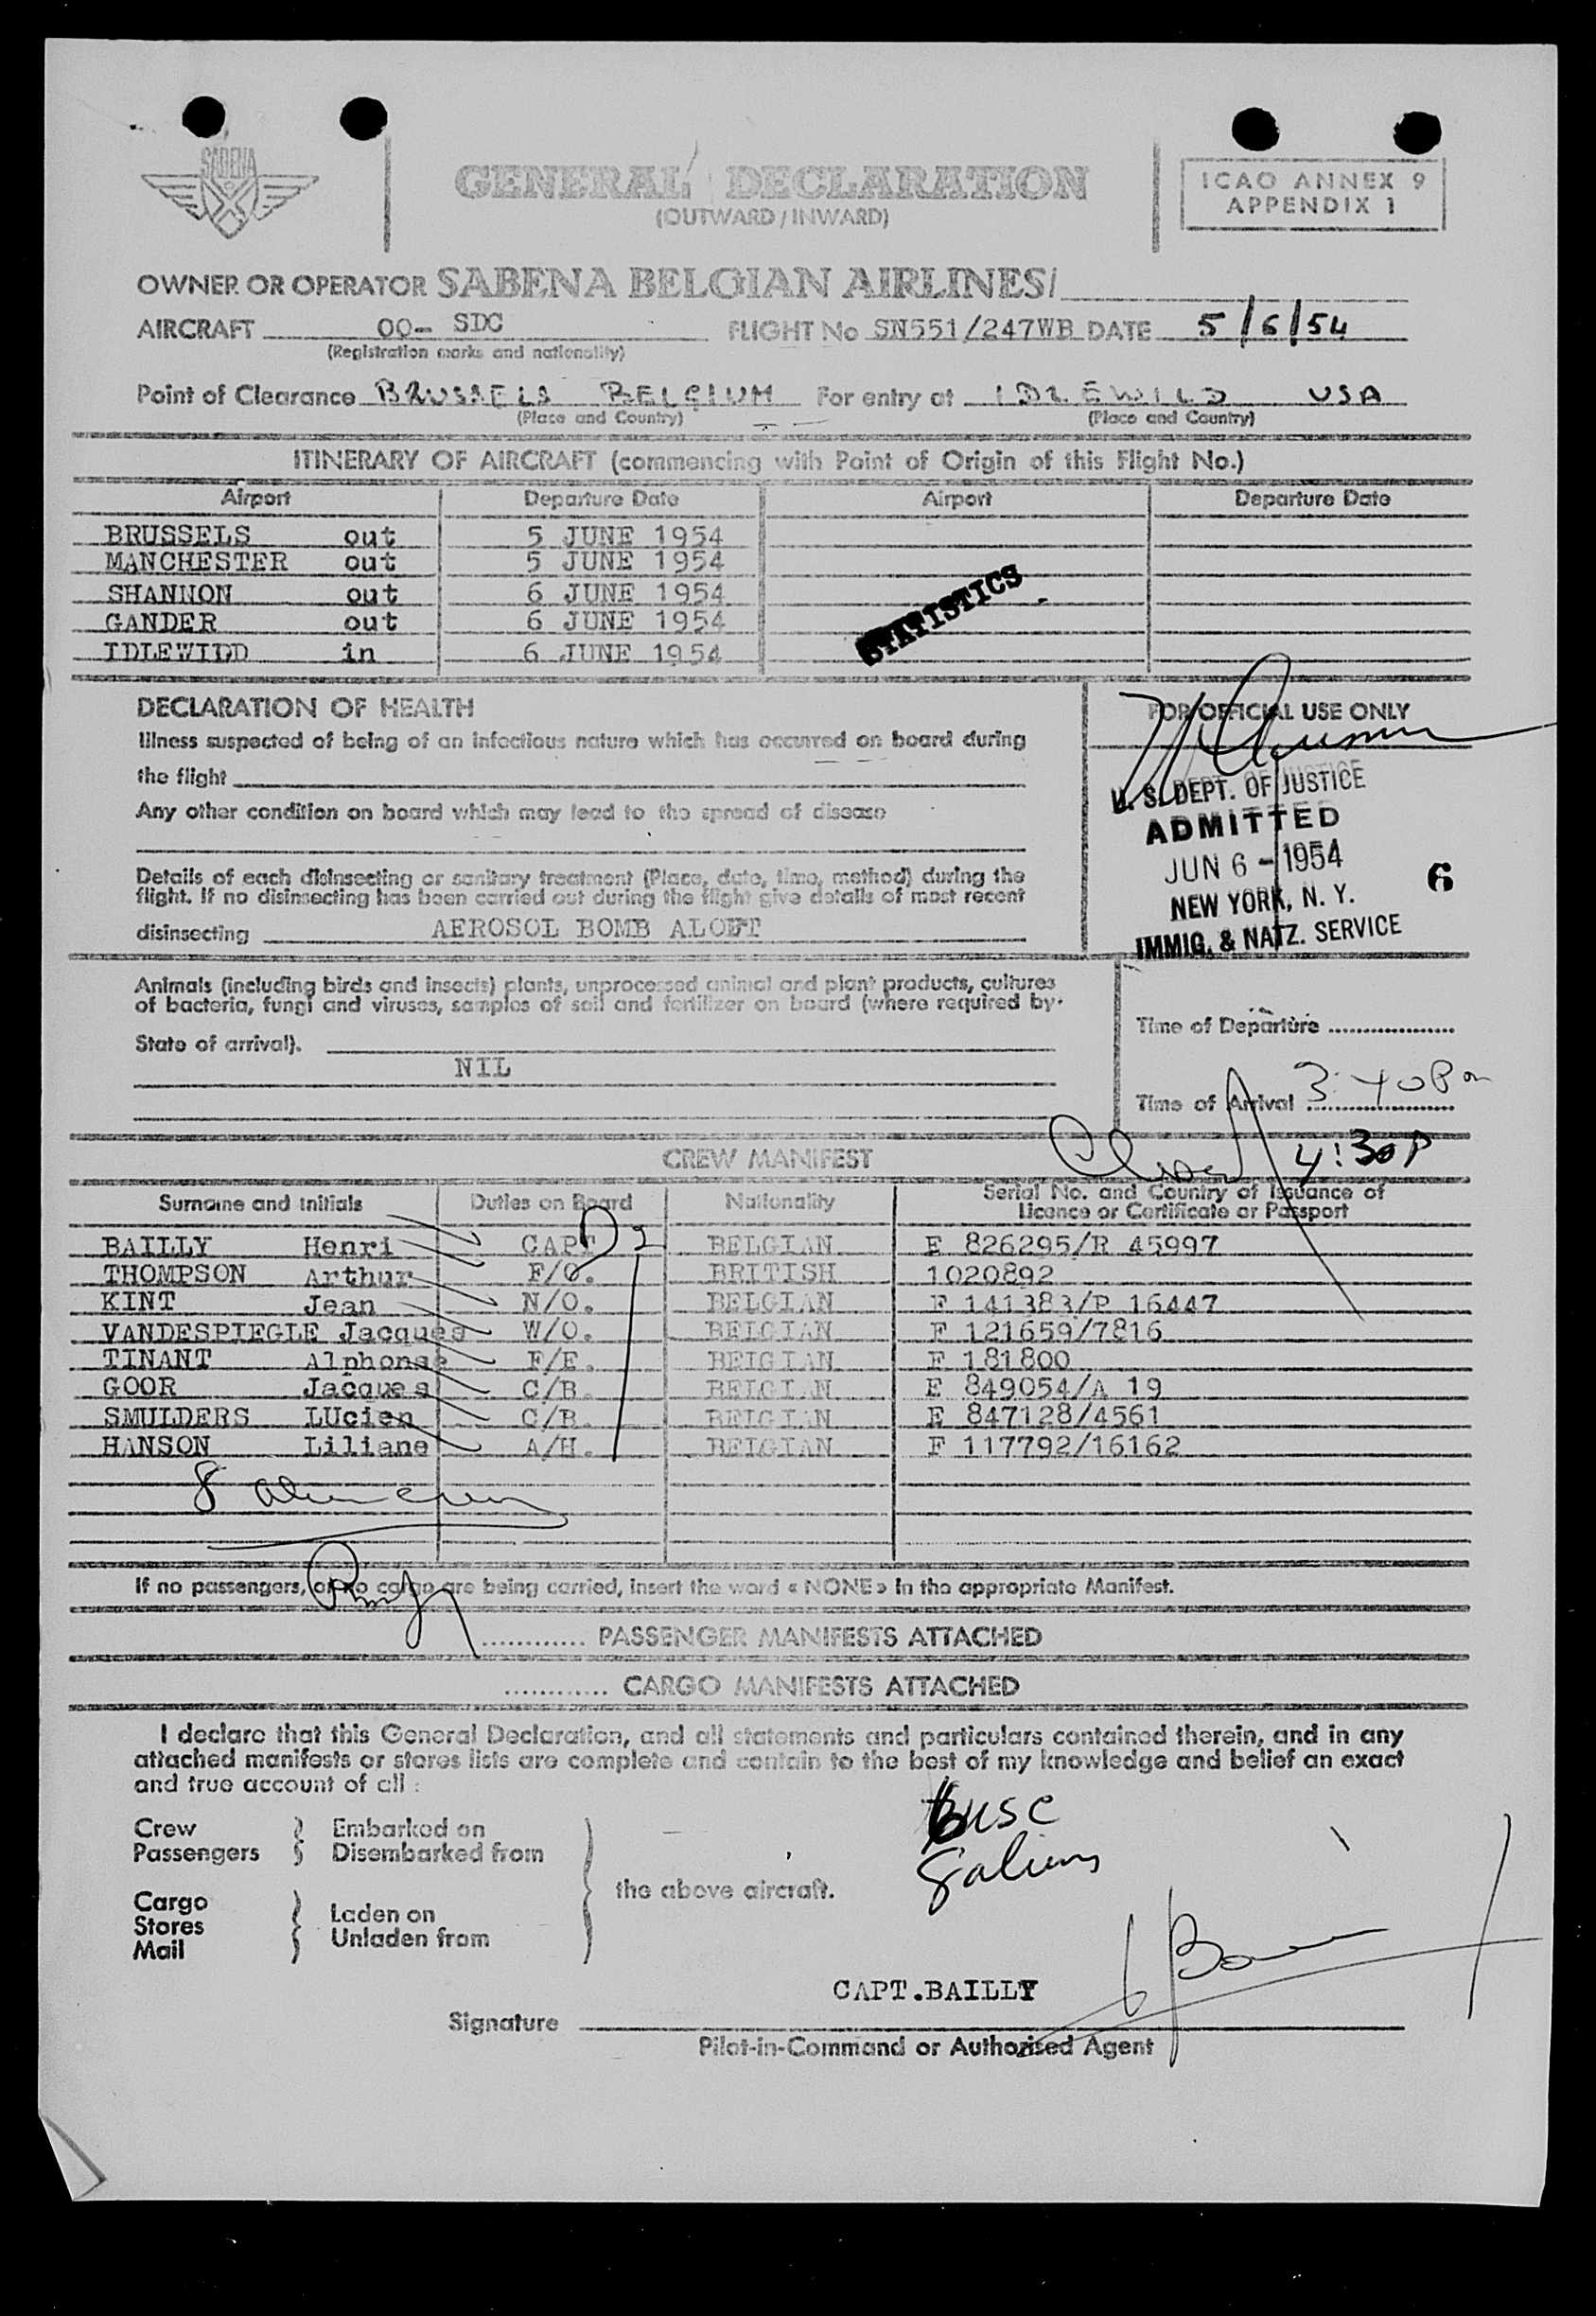 SABENA
GENERAL DECLARATION
(OUTWARD / INWARD)
ICAO ANNEX 9
APPENDIX 1
OWNER OR OPERATOR SABENA BELGIAN AIRLINES/
AIRCRAFT OO- SDC FLIGHT No SN551/247WB DATE 5/6/54
(Registration marks and nationality)
Point of Clearance BRUSSELS BELGIUM For entry at IDLEWILD USA
(Place and Country) (Place and Country)
ITINERARY OF AIRCRAFT (commencing with Point of Origin of this Flight No.)
Airport Departure Date Airport Departure Date
BRUSSELS out 5 JUNE 1954
MANCHESTER out 5 JUNE 1954
SHANNON out 6 JUNE 1954
GANDER out 6 JUNE 1954
IDLEWILD in 6 JUNE 1954
STATISTICS
DECLARATION OF HEALTH
Illness suspected of being of an infectious nature which has occurred on board during
the flight
Any other condition on board which may lead to the spread of disease
Details of each disinsecting or sanitary treatment (Place, date, time, method) during the
flight. If no disinsecting has been carried out during the flight give details of most recent
disinsecting AEROSOL BOMB ALOFT
FOR OFFICIAL USE ONLY
U. S. DEPT. OF JUSTICE
ADMITTED
JUN 6 - 1954
6
NEW YORK, N. Y.
IMMIG. & NATZ. SERVICE
Animals (including birds and insects) plants, unprocessed animal and plant products, cultures
of bacteria, fungi and viruses, samples of soil and fertilizer on board (where required by
State of arrival).
NIL
Time of Departure
Time of Arrival 3:40 Pm
4:30 P
CREW MANIFEST
Surname and Initials Duties on Board Nationality Serial No. and Country of Issuance of
Licence or Certificate or Passport
BAILLY Henri CAPT BELGIAN E 826295/R 45997
THOMPSON Arthur F/O. BRITISH 1020892
KINT Jean N/O. BELGIAN F 141383/P 16447
VANDESPIEGLE Jacques W/O. BELGIAN F 121659/7816
TINANT Alphonse F/E. BELGIAN F 181800
GOOR Jacques C/B. BELGIAN E 849054/A 19
SMULDERS LUcien C/B. BELGIAN E 847128/4561
HANSON Liliane A/H. BELGIAN F 117792/16162
8 alien crew
If no passengers, or no cargo are being carried, insert the word « NONE » in the appropriate Manifest.
............ PASSENGER MANIFESTS ATTACHED
............ CARGO MANIFESTS ATTACHED
I declare that this General Declaration, and all statements and particulars contained therein, and in any
attached manifests or stores lists are complete and contain to the best of my knowledge and belief an exact
and true account of all :
Crew Embarked on
Passengers Disembarked from
the above aircraft.
Cargo
Stores Laden on
Mail Unladen from
6 USC
8 aliens
CAPT.BAILLY
Signature
Pilot-in-Command or Authorized Agent